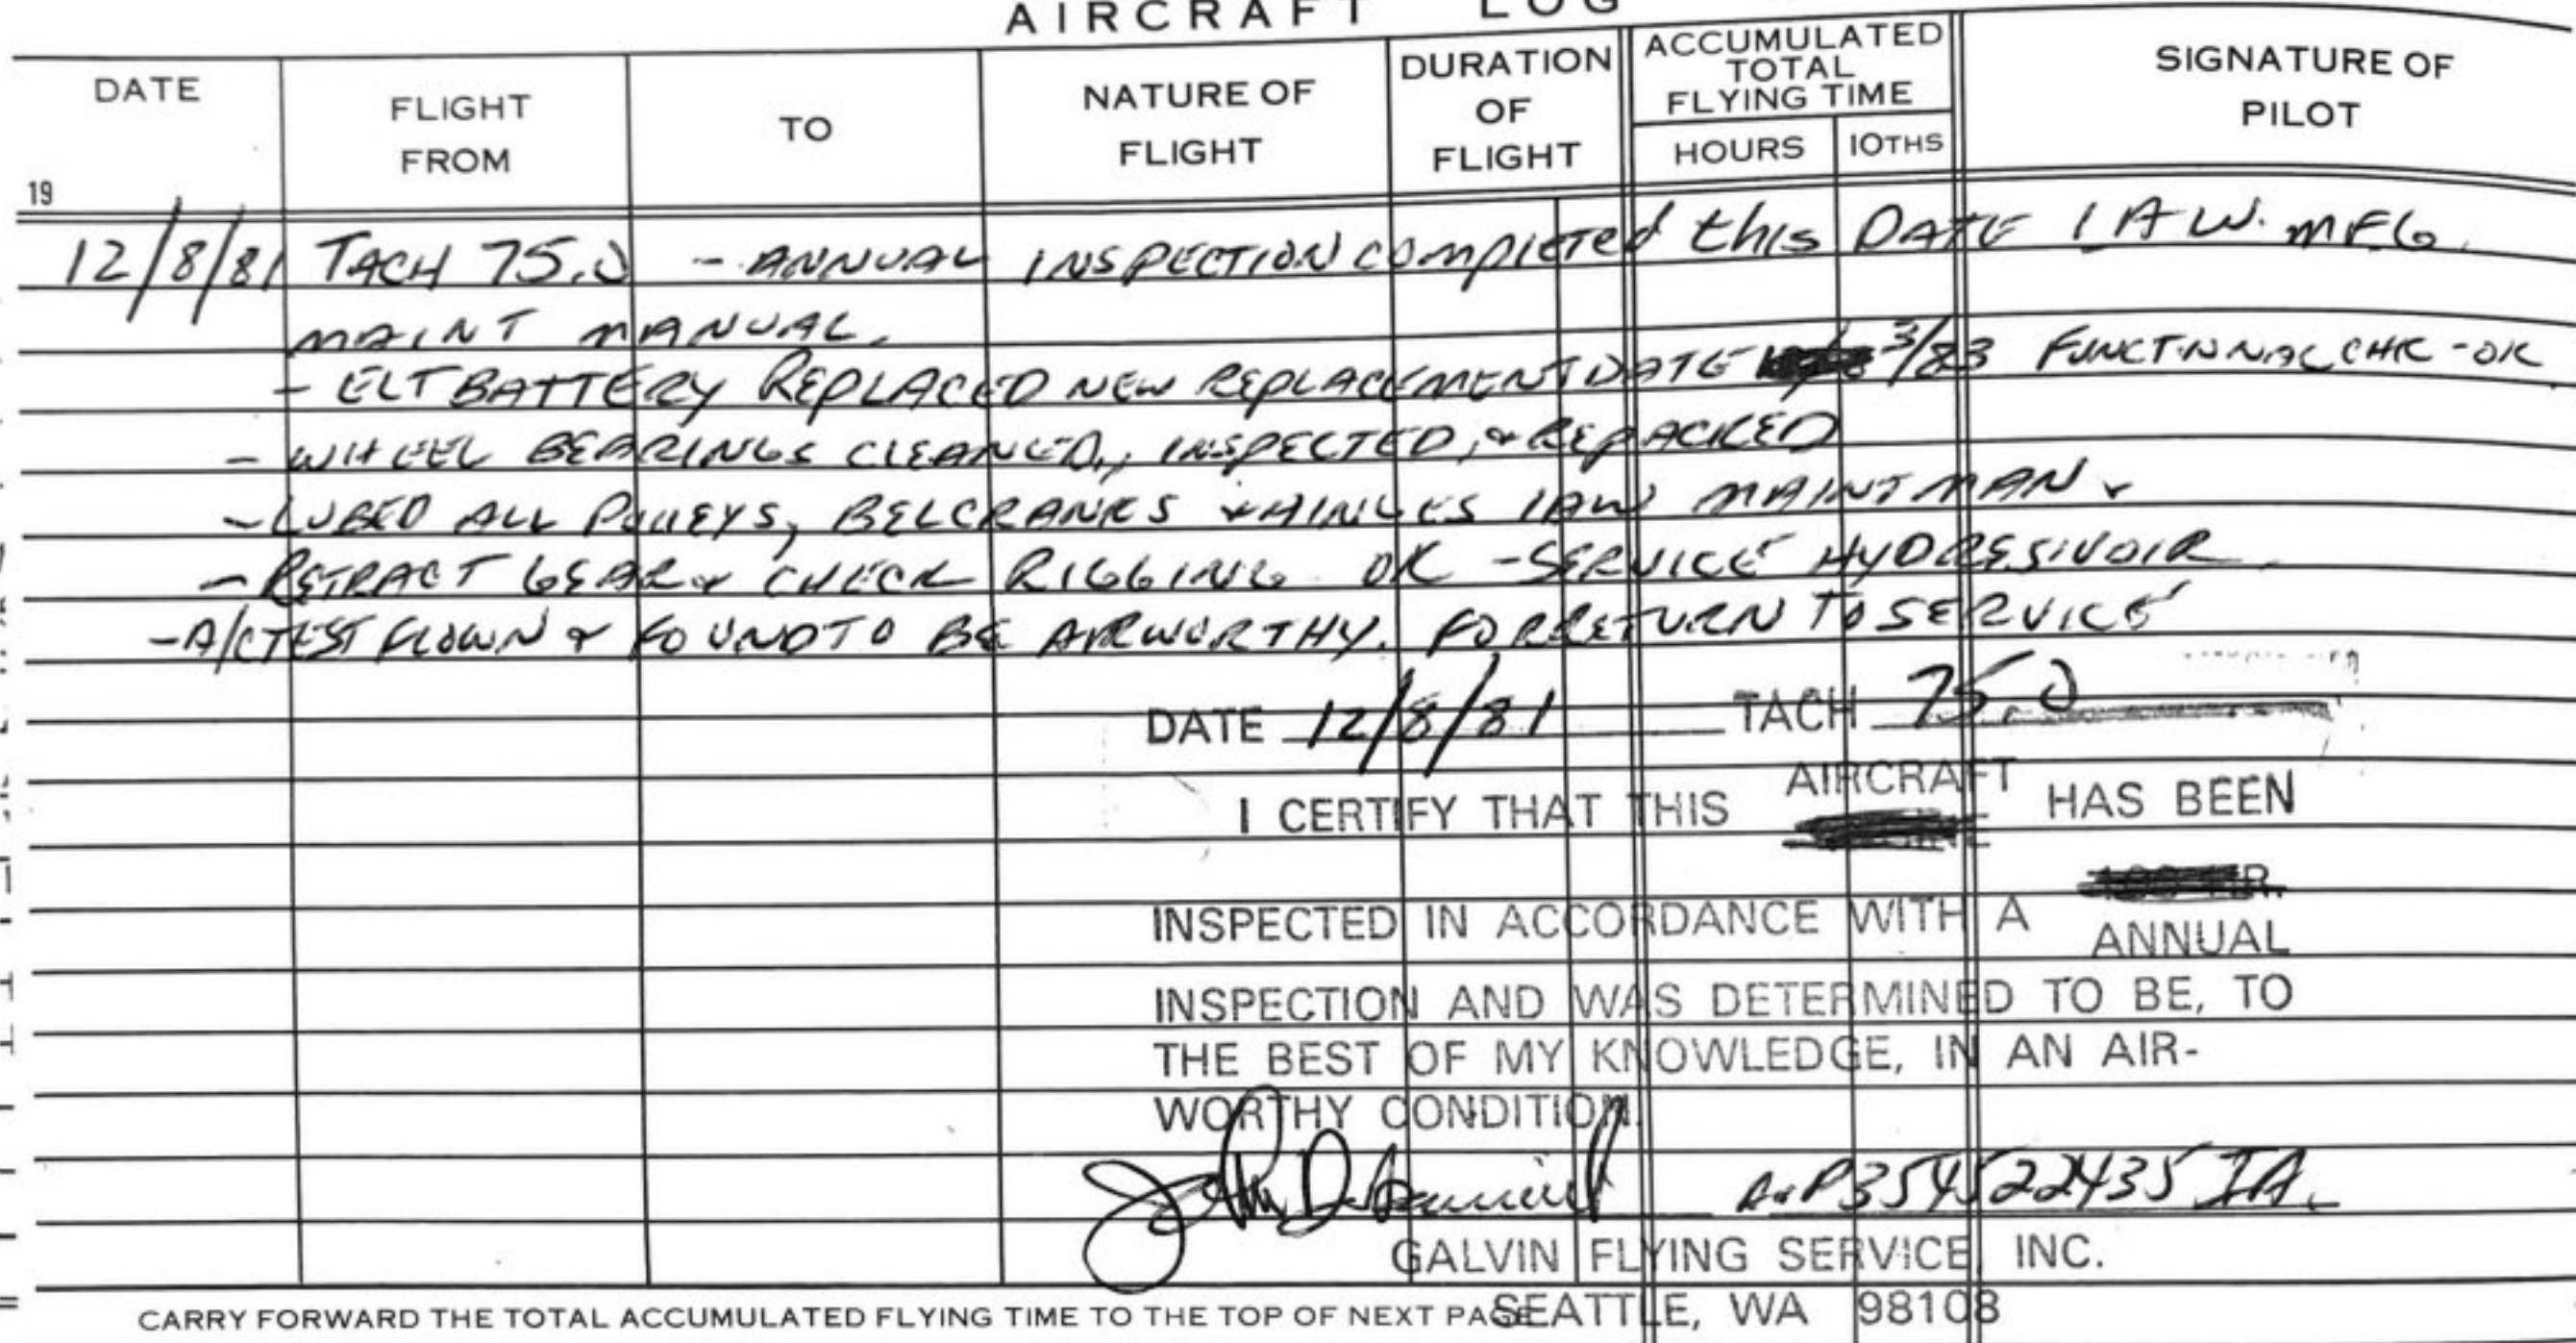 AIRCRAFT LOG
DATE
FLIGHT FROM
TO
NATURE OF FLIGHT
DURATION OF FLIGHT
ACCUMULATED TOTAL FLYING TIME
HOURS
10THS
SIGNATURE OF PILOT
19
12/8/81 TACH 75.0 - ANNUAL INSPECTION completed this DATE IAW. MFG.
MAINT MANUAL.
- ELT BATTERY REPLACED NEW REPLACEMENT DATE 3/83 FUNCTINNAL CHK - OK
- WHEEL BEARINGS CLEANED, INSPECTED, & REPACKED
- LUBED ALL PULLEYS, BELCRANKS & HINGES IAW MAINT MAN.
- RETRACT GEAR & CHECK RIGGING OK - SERVICE HYD RESIVOIR.
- A/C TEST FLOWN & FOUND TO BE AIRWORTHY. FOR RETURN TO SERVICE
DATE 12/8/81 TACH 75.0
I CERTIFY THAT THIS AIRCRAFT HAS BEEN
INSPECTED IN ACCORDANCE WITH A ANNUAL
INSPECTION AND WAS DETERMINED TO BE, TO
THE BEST OF MY KNOWLEDGE, IN AN AIR-
WORTHY CONDITION.
John A&P354522435 IA.
GALVIN FLYING SERVICE, INC.
SEATTLE, WA 98108
CARRY FORWARD THE TOTAL ACCUMULATED FLYING TIME TO THE TOP OF NEXT PAGE